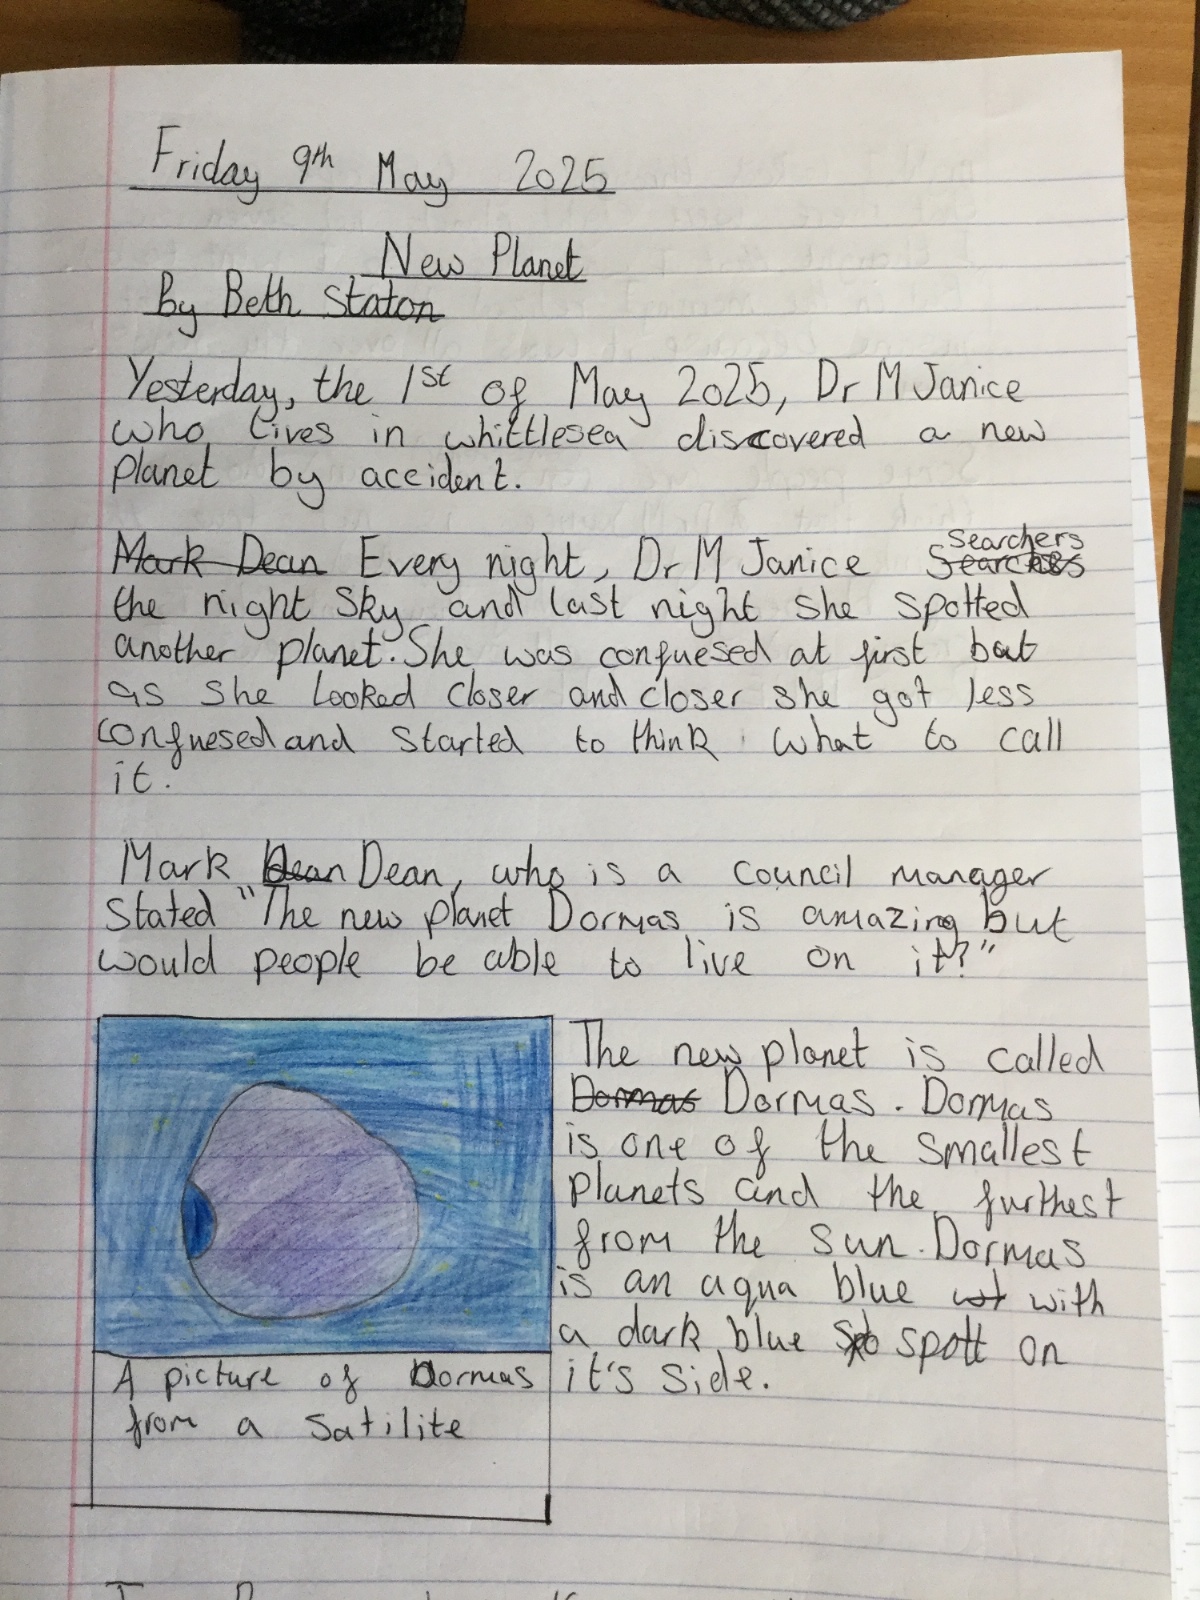 Friday 9th May 2025
New Planet
By Beth Staton
Yesterday, the 1st of May 2025, Dr M Janice
who lives in whittlesea discovered a new
planet by accident.
Mark Dean Every night, Dr M Janice Searchers
the night sky and last night she spotted
another planet. She was confuesed at first but
as she looked closer and closer she got less
confuesed and started to think what to call
it.
Mark Dean Dean, who is a council manager
stated "The new planet Dormas is amazing but
would people be able to live on it?"
The new planet is called
Dormas Dormas. Dormas
is one of the smallest
planets and the furthest
from the sun. Dormas
is an aqua blue with
a dark blue spott on
it's side.
A picture of Dormas
from a satilite